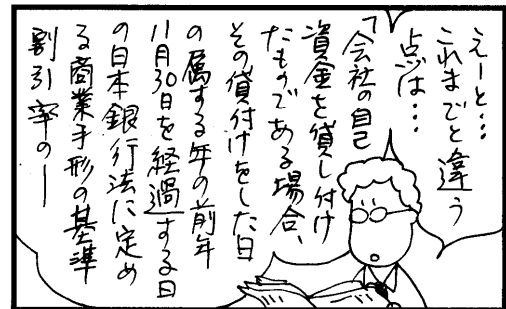 えーと…
これまでと違う
点は…
「会社の自己
資金を貸し付け
たものである場合、
その貸付けをした日
の属する年の前年
11月30日を経過する日
の日本銀行法に定め
る商業手形の基準
割引率のー